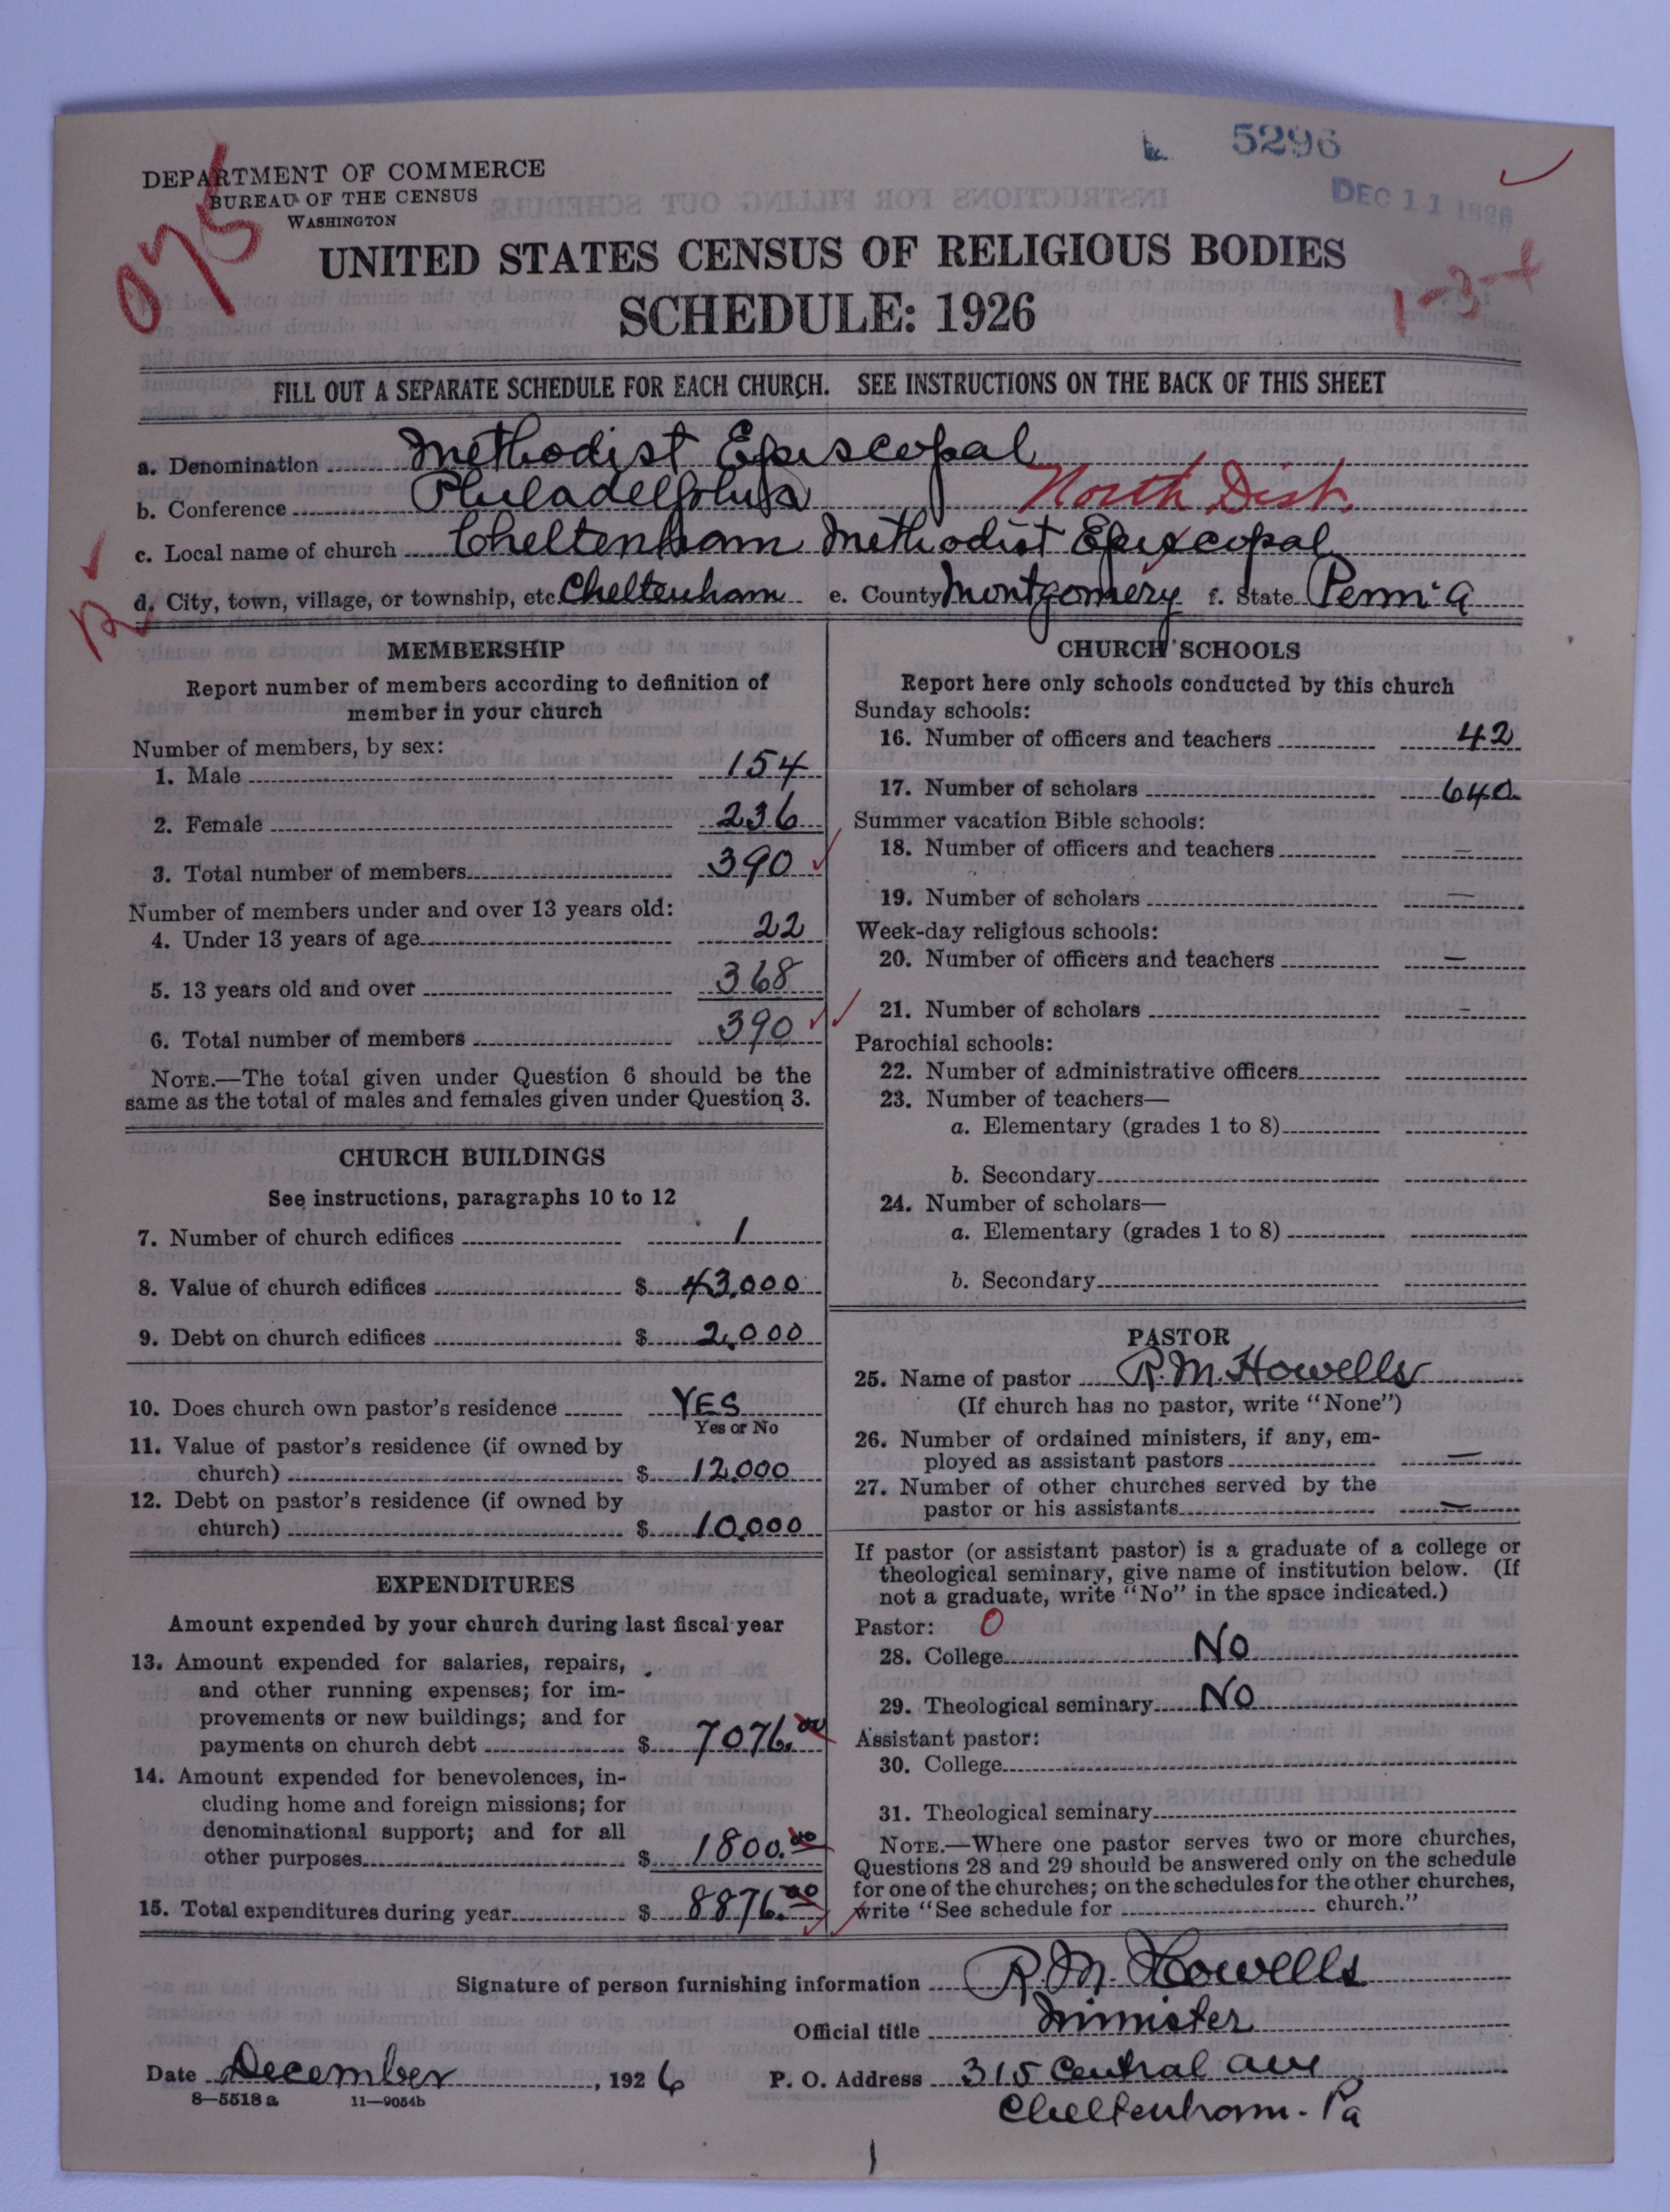 5296
DEC 11 1926
DEPARTMENT OF COMMERCE
BUREAU OF THE CENSUS
WASHINGTON
075
UNITED STATES CENSUS OF RELIGIOUS BODIES
SCHEDULE: 1926
1-3-4
FILL OUT A SEPARATE SCHEDULE FOR EACH CHURCH. SEE INSTRUCTIONS ON THE BACK OF THIS SHEET
a. Denomination Methodist Episcopal
b. Conference Philadelphia North Dist.
c. Local name of church Cheltenham Methodist Episcopal
d. City, town, village, or township, etc. Cheltenham e. County Montgomery f. State Penn'a
MEMBERSHIP
Report number of members according to definition of
member in your church
Number of members, by sex:
1. Male 154
2. Female 236
3. Total number of members 390
Number of members under and over 13 years old:
4. Under 13 years of age 22
5. 13 years old and over 368
6. Total number of members 390
NOTE.—The total given under Question 6 should be the
same as the total of males and females given under Question 3.
CHURCH BUILDINGS
See instructions, paragraphs 10 to 12
7. Number of church edifices 1
8. Value of church edifices $ 43,000
9. Debt on church edifices $ 2,000
10. Does church own pastor's residence YES
Yes or No
11. Value of pastor's residence (if owned by
church) $ 12,000
12. Debt on pastor's residence (if owned by
church) $ 10,000
EXPENDITURES
Amount expended by your church during last fiscal year
13. Amount expended for salaries, repairs,
and other running expenses; for im-
provements or new buildings; and for
payments on church debt $ 7076.00
14. Amount expended for benevolences, in-
cluding home and foreign missions; for
denominational support; and for all
other purposes $ 1800.00
15. Total expenditures during year $ 8876.00
CHURCH SCHOOLS
Report here only schools conducted by this church
Sunday schools:
16. Number of officers and teachers 42
17. Number of scholars 640
Summer vacation Bible schools:
18. Number of officers and teachers —
19. Number of scholars —
Week-day religious schools:
20. Number of officers and teachers —
21. Number of scholars —
Parochial schools:
22. Number of administrative officers
23. Number of teachers—
a. Elementary (grades 1 to 8)
b. Secondary
24. Number of scholars—
a. Elementary (grades 1 to 8)
b. Secondary
PASTOR
25. Name of pastor R.M. Howells
(If church has no pastor, write "None")
26. Number of ordained ministers, if any, em-
ployed as assistant pastors —
27. Number of other churches served by the
pastor or his assistants —
If pastor (or assistant pastor) is a graduate of a college or
theological seminary, give name of institution below. (If
not a graduate, write "No" in the space indicated.)
Pastor: 0
28. College No
29. Theological seminary No
Assistant pastor:
30. College
31. Theological seminary
NOTE.—Where one pastor serves two or more churches,
Questions 28 and 29 should be answered only on the schedule
for one of the churches; on the schedules for the other churches,
write "See schedule for church."
Signature of person furnishing information R. M. Howells
Official title Minister
Date December, 1926 P. O. Address 315 Central ave
8—5518 a 11—9054b Cheltenham. Pa